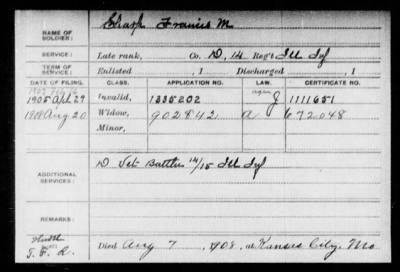 NAME OF SOLDIER: Sharp Francis M
SERVICE: Late rank, Co. D, 14 Reg't Ill Inf
TERM OF SERVICE: Enlisted , 1 Discharged , 1
DATE OF FILING. CLASS. APPLICATION NO. LAW. CERTIFICATE NO.
1905 Apl 29 Invalid, 1335202 J 1111651
Aug 20 Widow, 902842 a 672048
Minor,
ADDITIONAL SERVICES: D Vet Battln 14/15 Ill Inf
REMARKS:
Died Aug 7, 1908, at Kansas City, Mo